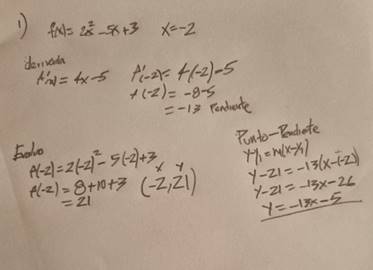 1) f(x)= 2x² -5x+3   x=-2
derivada
f'(x)= 4x-5   f'(-2)= 4(-2)-5
f(-2)= -8-5
= -13 Pendiente
Evaluo
f(-2)=2(-2)²-5(-2)+3
f(-2)= 8+10+3
= 21
x y
(-2,21)
Punto-Pendiente
y-y₁=m(x-x₁)
y-21=-13(x-(-2))
y-21=-13x-26
y=-13x-5